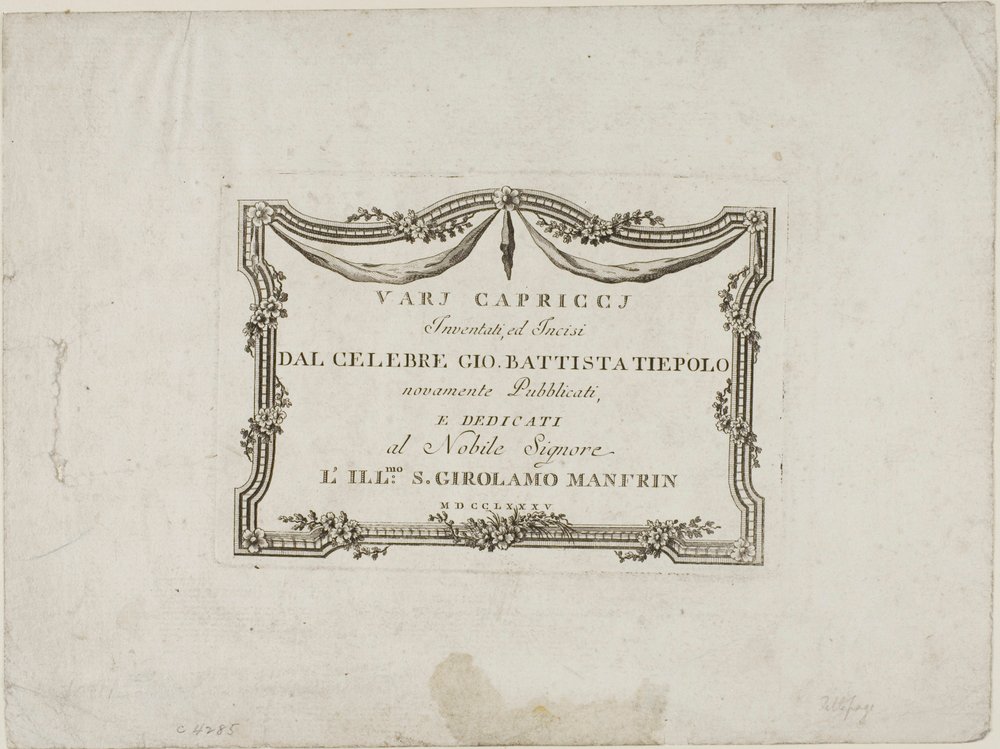 VARJ CAPRICCJ
Inventati, ed Incisi
DAL CELEBRE GIO. BATTISTA TIEPOLO
novamente Pubblicati,
E DEDICATI
al Nobile Signore
L' ILL.mo S. GIROLAMO MANFRIN
MDCCLXXXV
C 4285
Titlepage